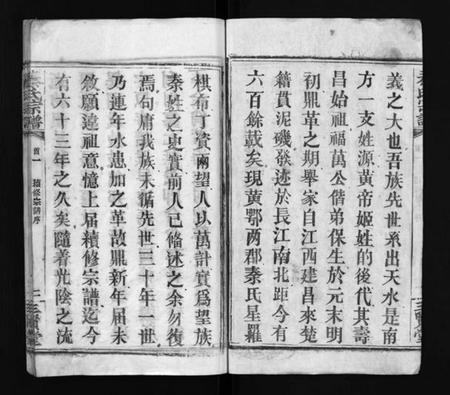 義之大也吾族先世系出天水是南
方一支姓源黃帝姬姓的後代其壽
昌始祖福萬公偕弟保生於元末明
初鼎革之期舉家自江西建昌來楚
籍貫泥磯發迹於長江南北距今有
六百餘載矣現黃鄂两郡秦氏星羅
棋布丁資兩望人以萬計實爲望族
秦姓之史實前人已偹述之余勿復
焉句庸我族未循先世三十年一世
乃連年水患加之革故鼎新年届未
敘願違祖意憶上届續修宗譜迄今
有六十三年之久矣隨着光陰之流
秦氏宗譜
首一
續修宗譜序
二